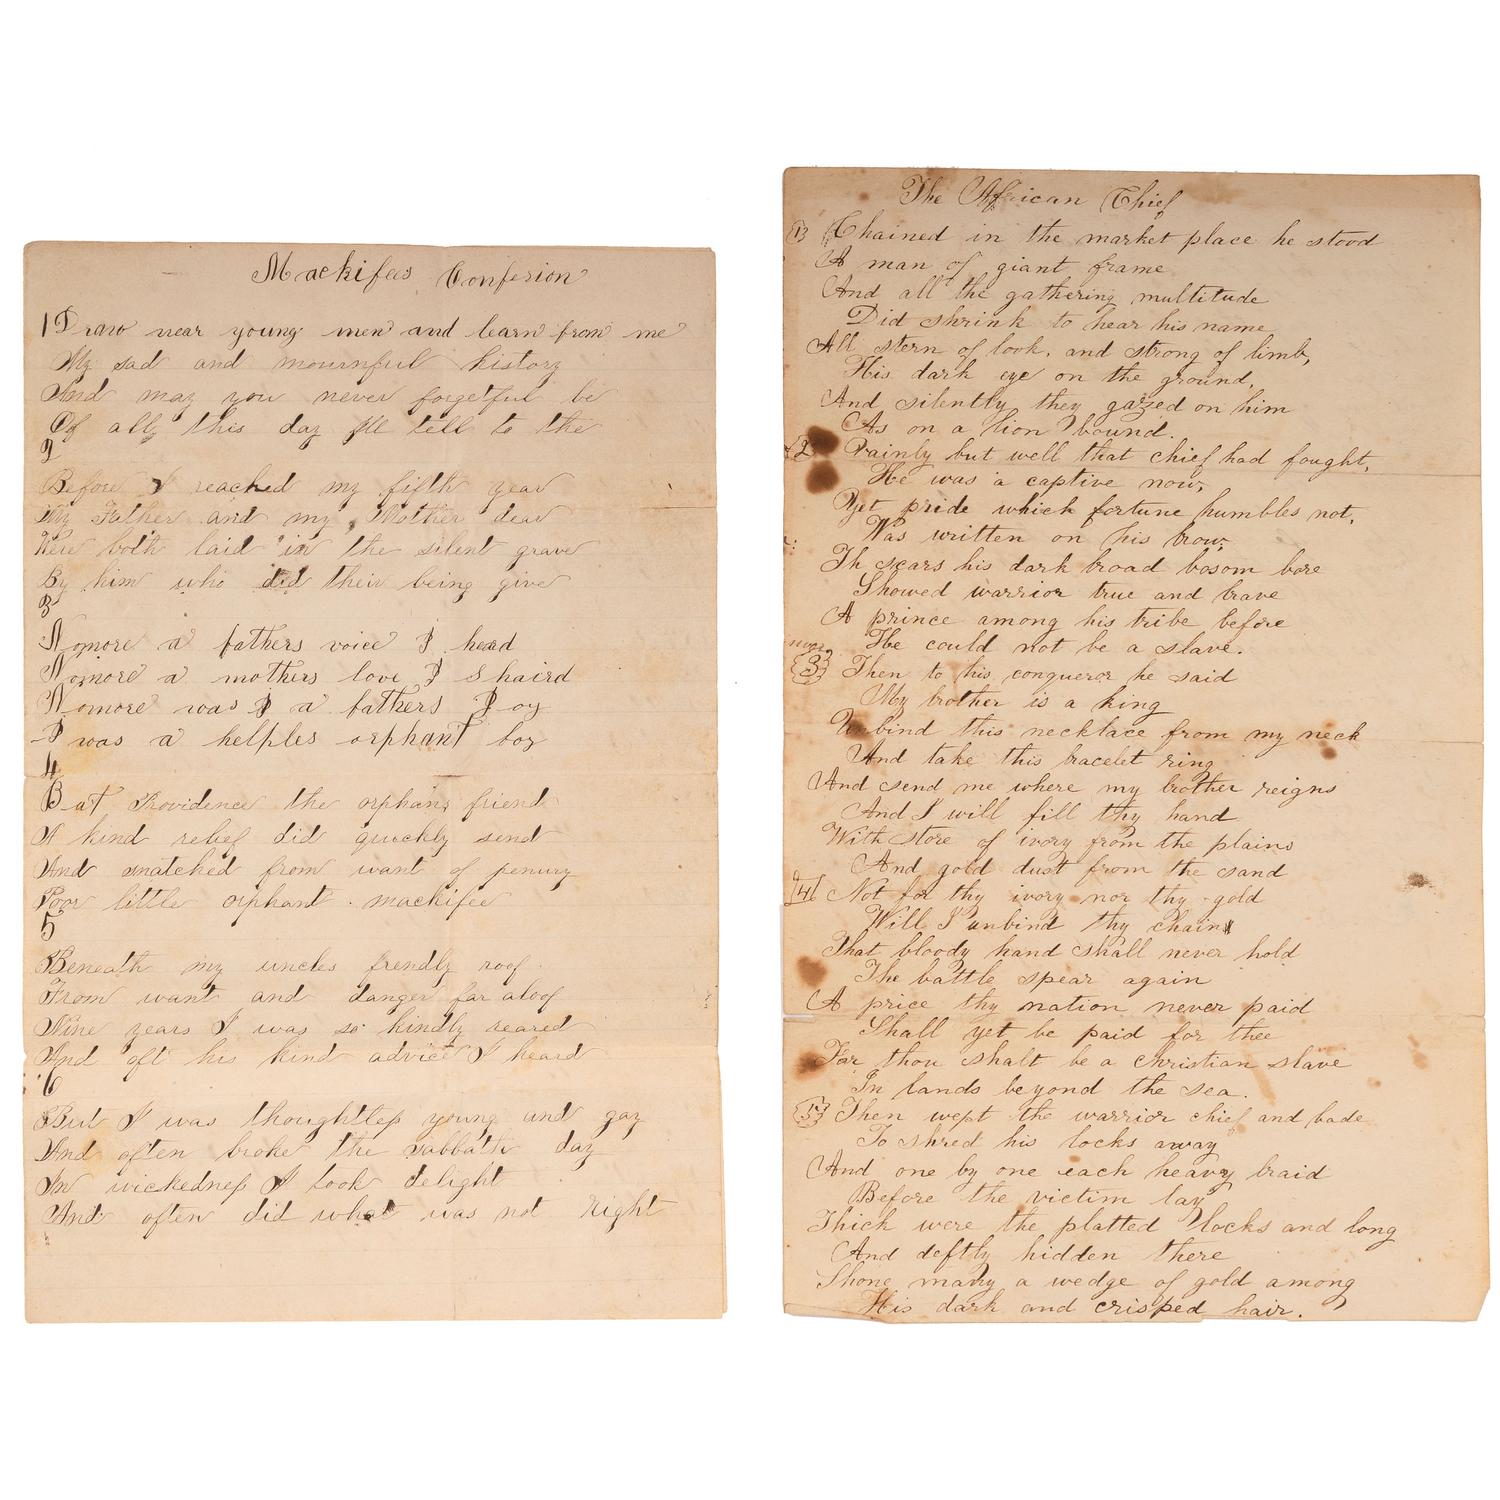 Mackifees Confesion
1 Draw near young men and learn from me
My sad and mournful history
And may you never forgetful be
Of all this day Ill tell to the
2
Before I reached my fifth year
My Father and my Mother dear
Were both laid in the silent grave
By him who did their being give
3
Nomore a fathers voice I heard
Nomore a mothers love I shaird
Nomore was I a fathers Joy
I was a helples orphant boy
4
But Providence the orphans friend
A kind relief did quickly send
And snatched from want of penury
Poor little orphant mackifee
5
Beneath my uncles frendly roof
From want and danger far aloof
Nine years I was so kindly reared
And oft his kind advice I heard
6
But I was thoughtless young and gay
And often broke the sabbath day
In wickedness I took delight
And often did what was not right
The African Chief
1 Chained in the market place he stood
A man of giant frame
And all the gathering multitude
Did shrink to hear his name
All stern of look, and strong of limb,
His dark eye on the ground,
And silently they gazed on him
As on a lion bound.
2 Vainly but well that chief had fought,
He was a captive now,
Yet pride which fortune humbles not,
Was written on his brow,
Th scars his dark broad bosom bore
Showed warrior true and brave
A prince among his tribe before
He could not be a slave.
3 Then to his conqueror he said
My brother is a king
Unbind this necklace from my neck
And take this bracelet ring
And send me where my brother reigns
And I will fill thy hand
With store of ivory from the plains
And gold dust from the sand
4 Not for thy ivory nor thy gold
Will I unbind thy chain
That bloody hand shall never hold
The battle spear again
A price thy nation never paid
Shall yet be paid for thee
For thou shalt be a christian slave
In lands beyond the sea.
5 Then wept the warrior chief and bade
To shred his locks away
And one by one each heavy braid
Before the victim lay
Thick were the platted locks and long
And deftly hidden there
Shone many a wedge of gold among
His dark and crisped hair.